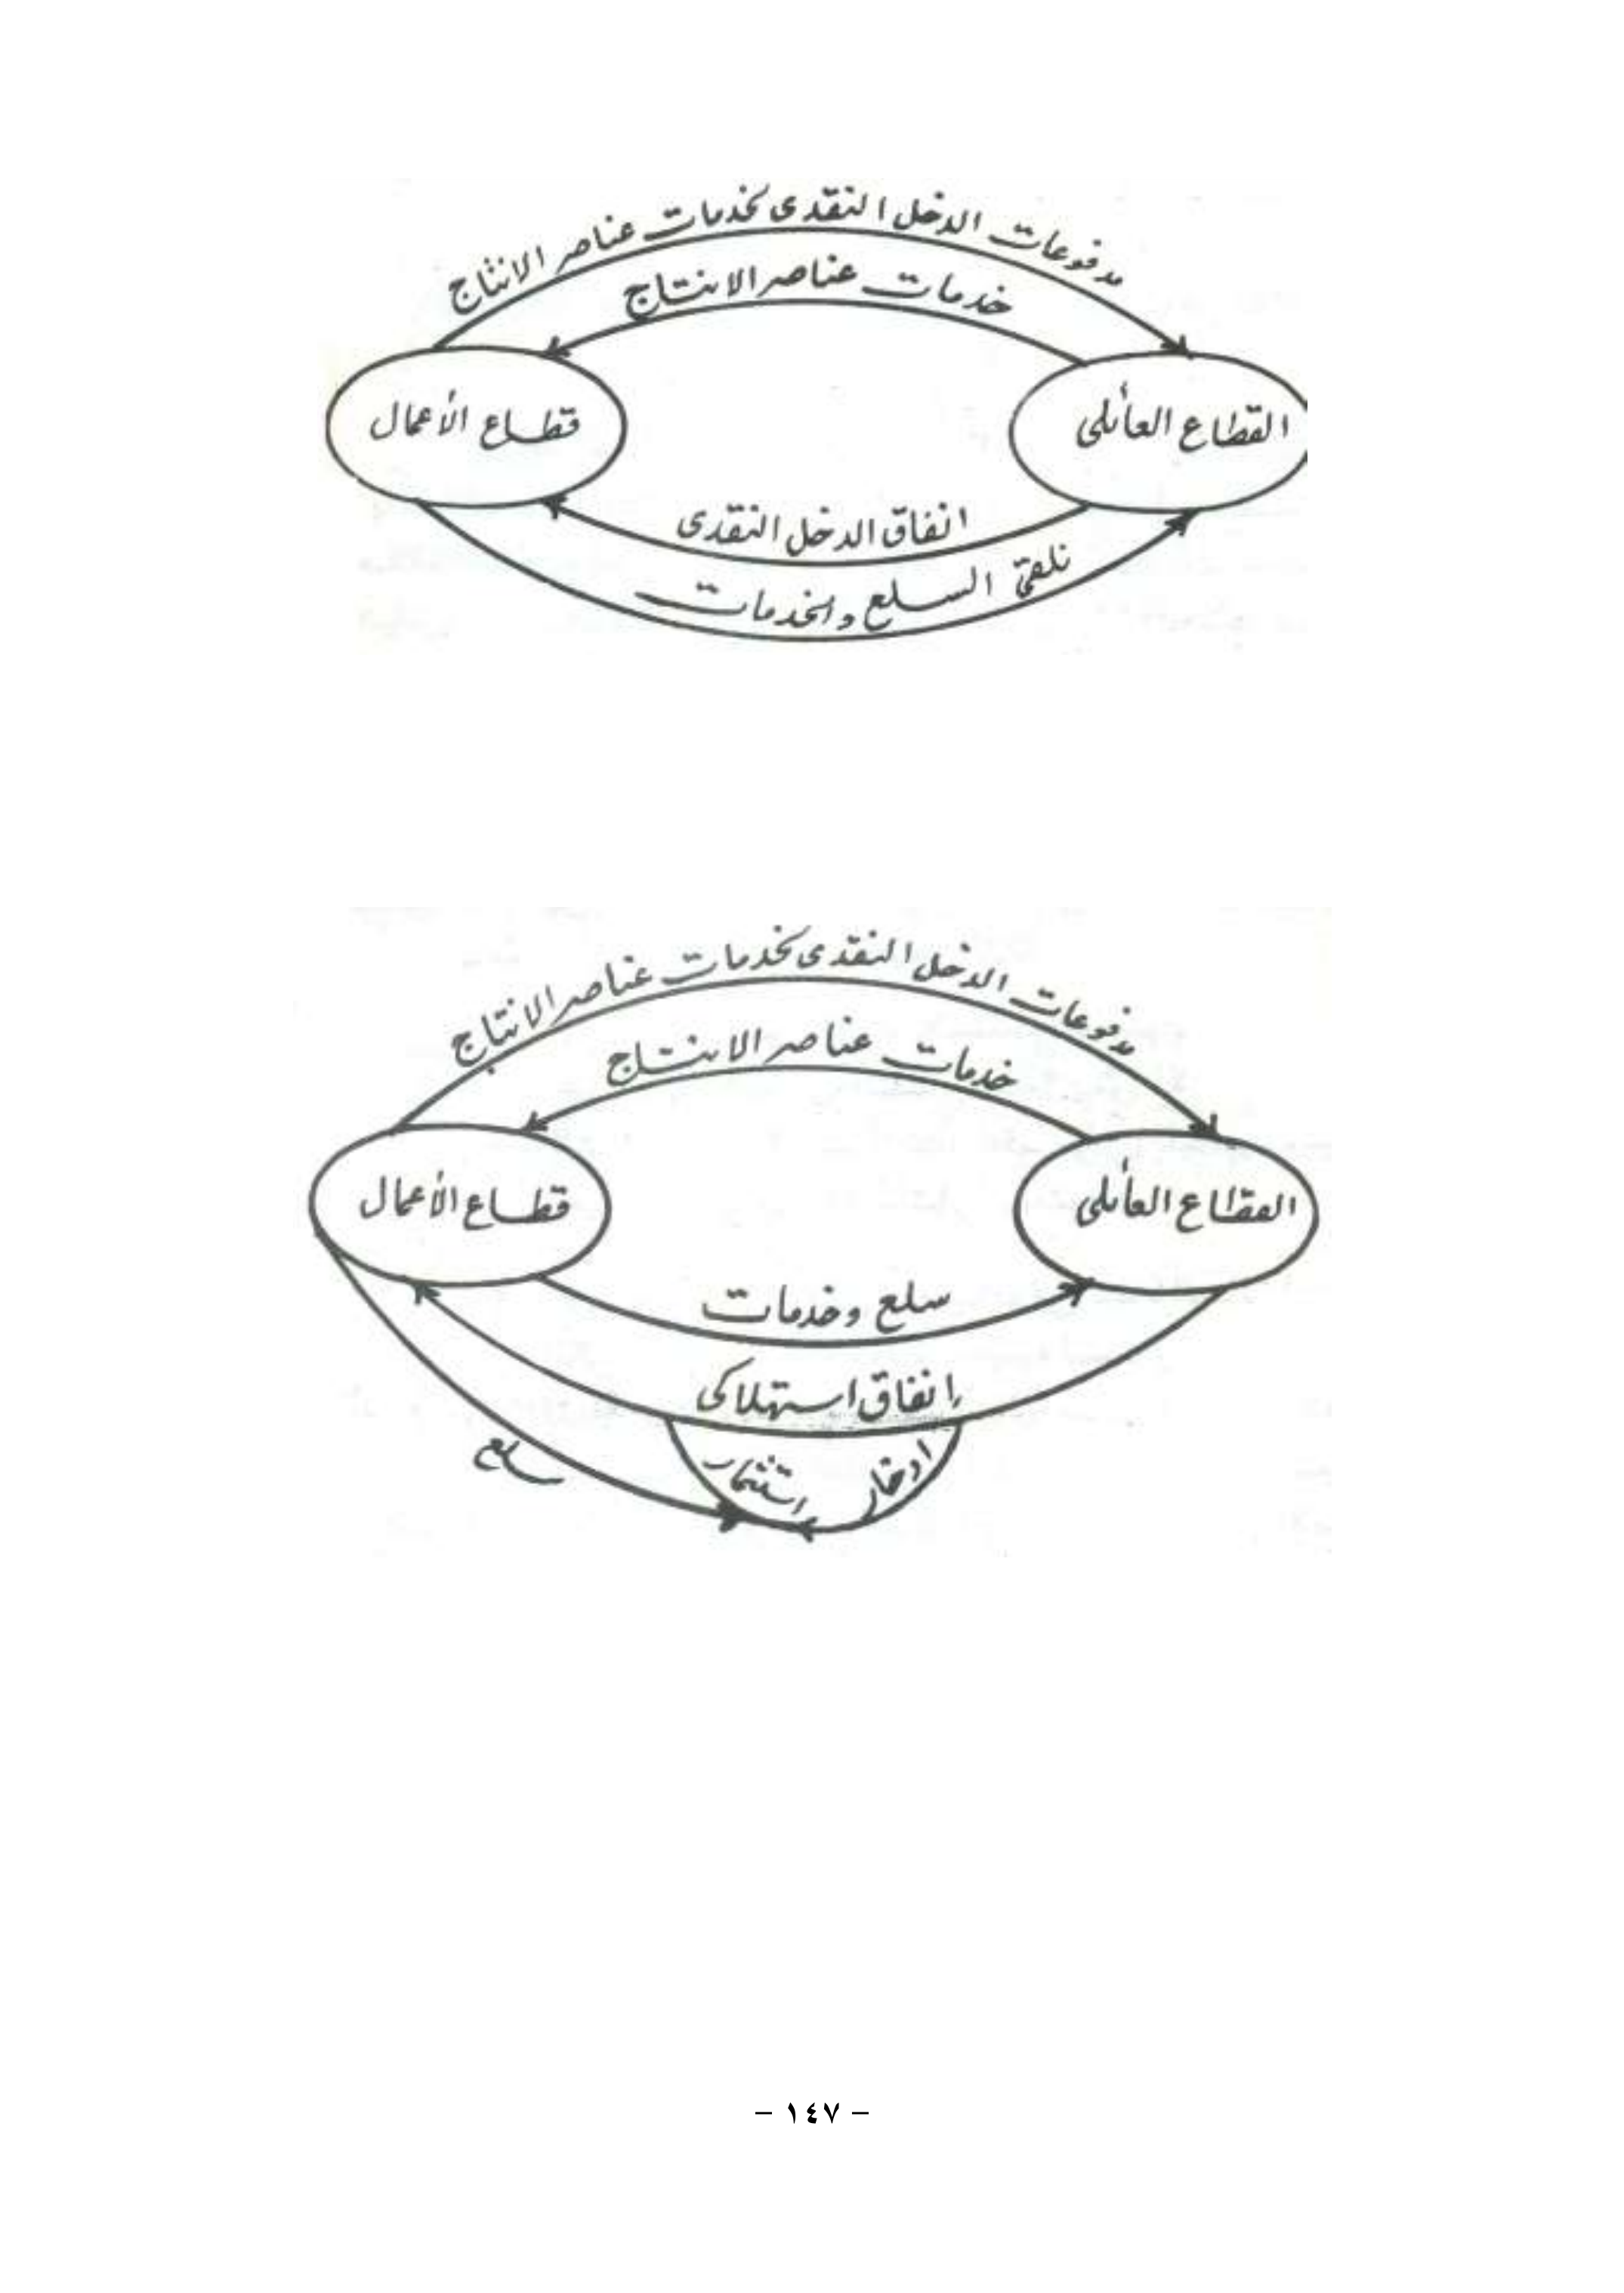 مدفوعات الدخل النقدى لخدمات عناصر الانتاج
خدمات عناصر الانتاج
القطاع العائلى
قطاع الأعمال
انفاق الدخل النقدى
تلقى السلع والخدمات
مدفوعات الدخل النقدى لخدمات عناصر الانتاج
خدمات عناصر الانتاج
القطاع العائلى
قطاع الأعمال
سلع وخدمات
إنفاق استهلاكى
ادخار
استثمار
سلع
- ١٤٧ -